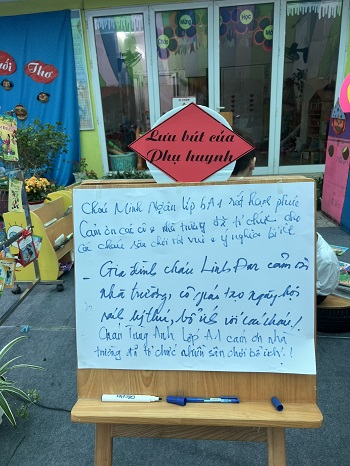 Thơ
Chào
Mừng
Học
Mới
Lưu bút của
Phụ huynh
Cháu Minh Ngân lớp 6A1 rất hạnh phúc
Cảm ơn các cô & nhà trường đã tổ chức cho
các cháu sân chơi rất vui & ý nghĩa
- Gia đình cháu Linh Đan cảm ơn
nhà trường, cô giáo tạo ngày hội
rất lý thú, bổ ích với các cháu!
Cháu Trung Anh Lớp A1 cảm ơn nhà
trường đã tổ chức nhiều sân chơi bổ ích!